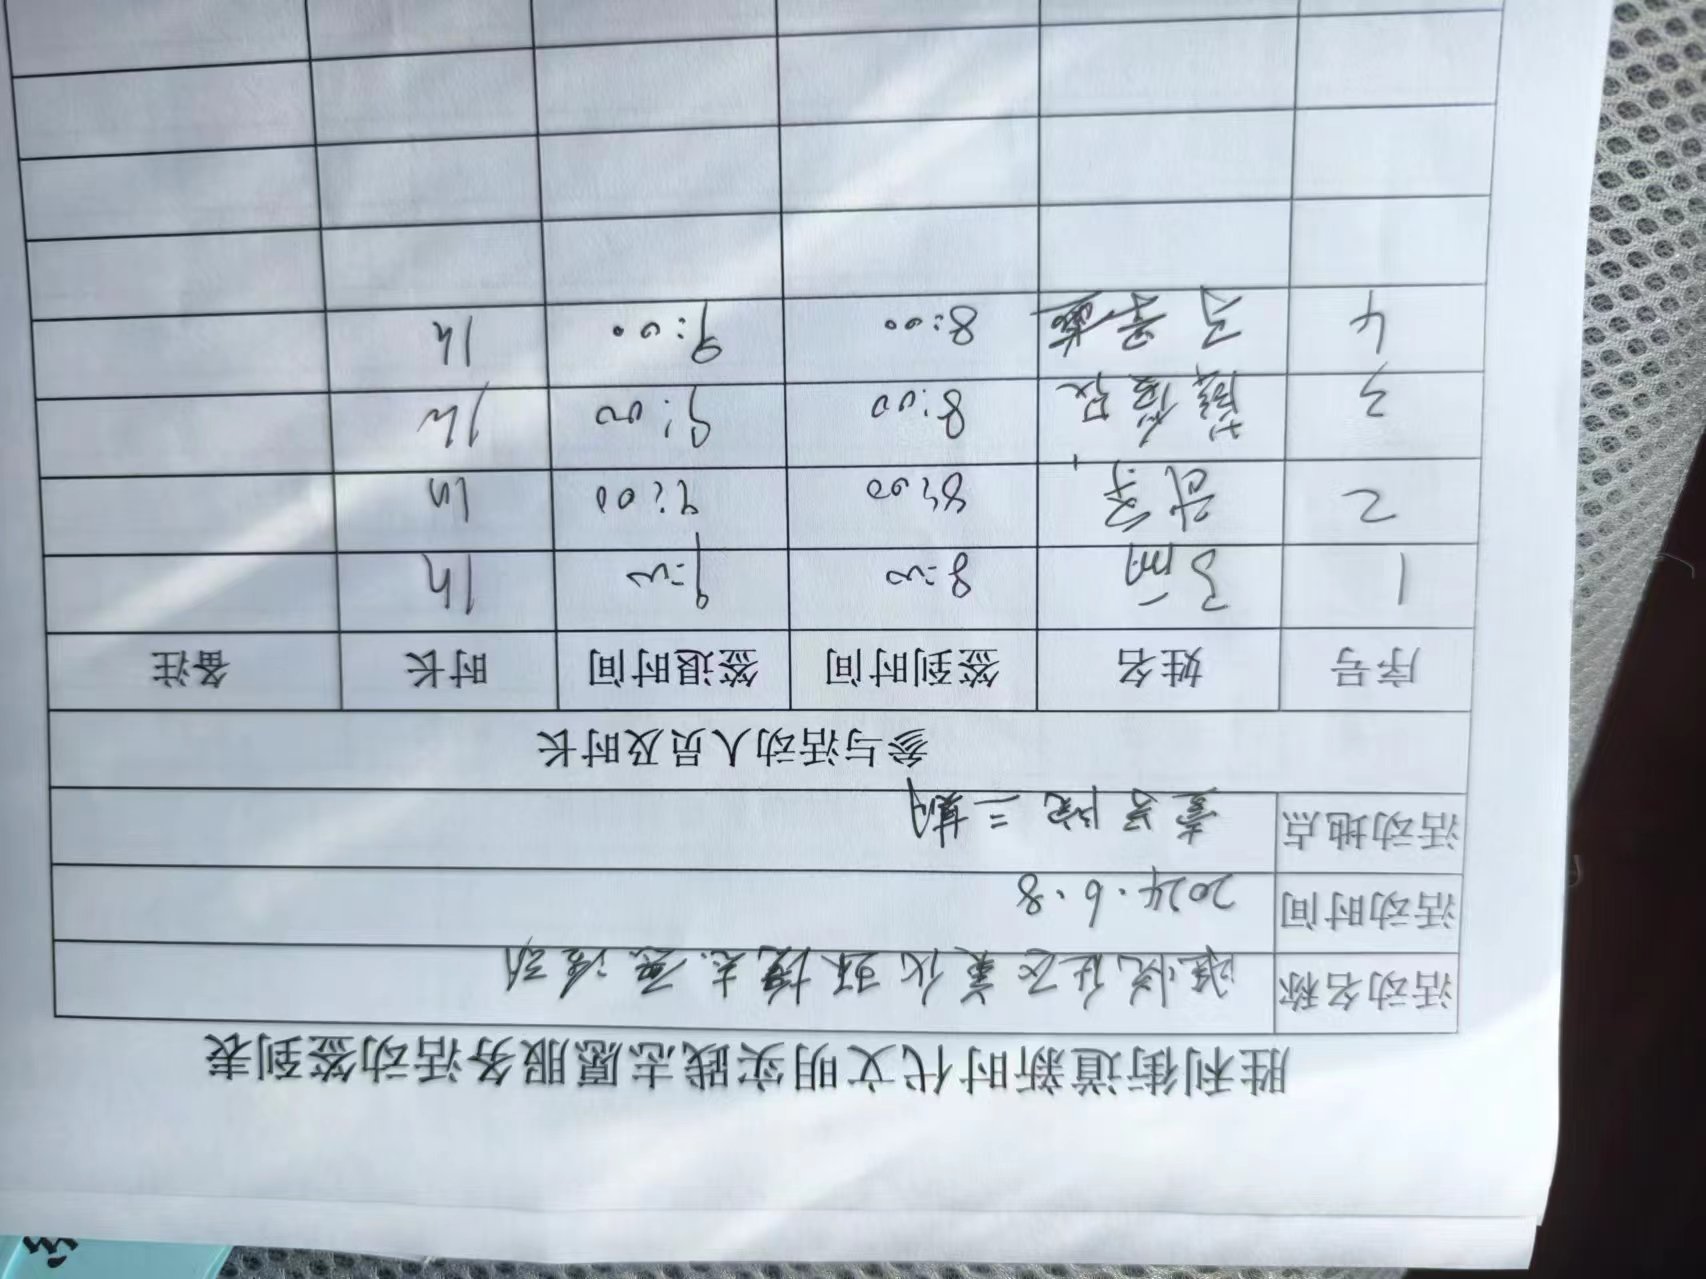 胜利街道新时代文明实践志愿服务活动签到表
活动名称 雅悦社区美化环境志愿活动
活动时间 2024.6.8
活动地点 二期
参与活动人员及时长
序号 姓名 签到时间 签退时间 时长 备注
1 8:00 9:00 1h
2 8:00 9:00 1h
3 8:00 9:00 1h
4 8:00 9:00 1h